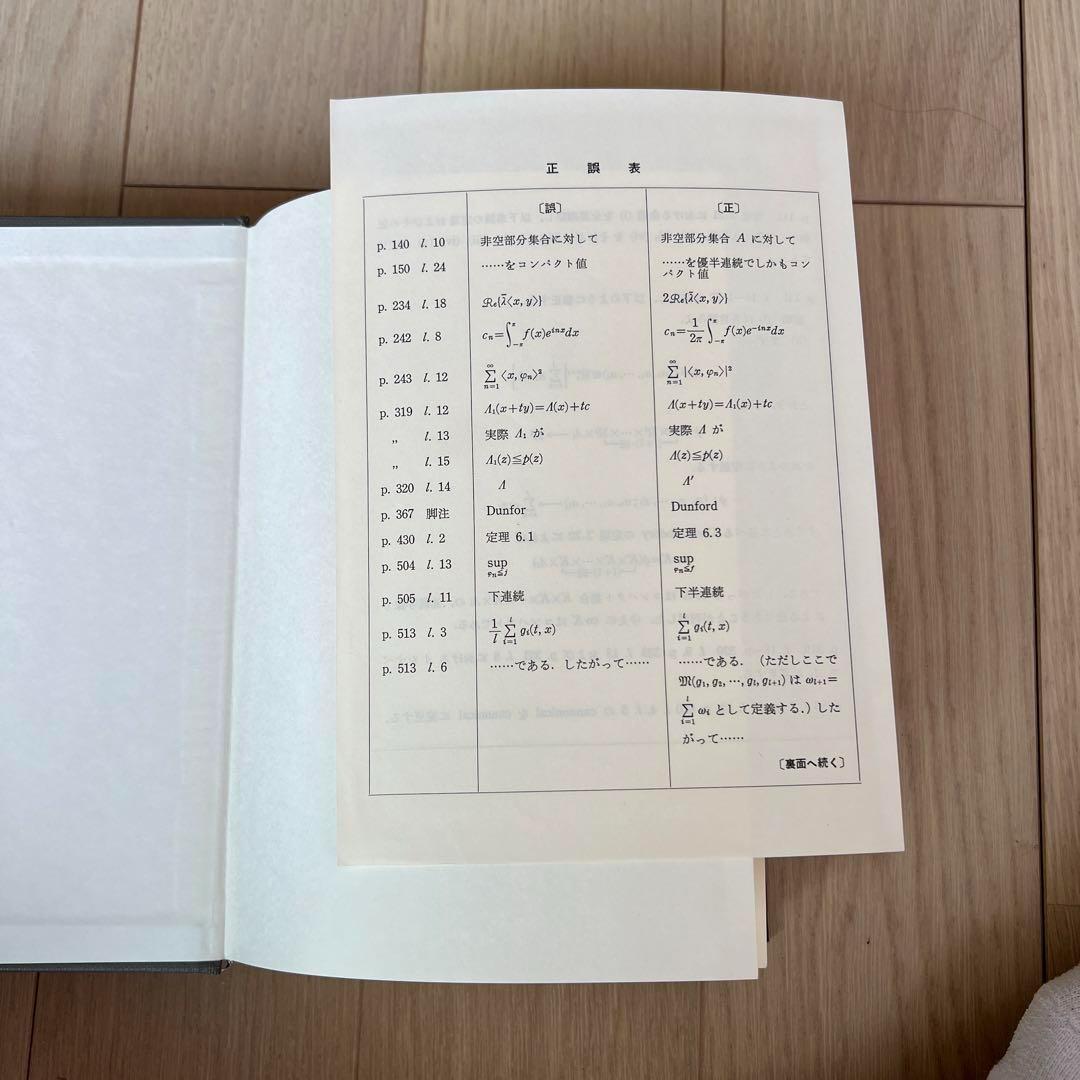 正 誤 表
〔誤〕 〔正〕
p. 140 l. 10 非空部分集合に対して 非空部分集合 A に対して
p. 150 l. 24 ……をコンパクト値 ……を優半連続でしかもコン
パクト値
p. 234 l. 18 ℛe{λ̄⟨x, y⟩} 2ℛe{λ̄⟨x, y⟩}
p. 242 l. 8 cₙ=∫_{-π}^{π} f(x)e^{inx}dx cₙ=1/2π ∫_{-π}^{π} f(x)e^{-inx}dx
p. 243 l. 12 ∑_{n=1}^{∞} ⟨x, φₙ⟩² ∑_{n=1}^{∞} |⟨x, φₙ⟩|²
p. 319 l. 12 Λ₁(x+ty)=Λ(x)+tc Λ(x+ty)=Λ₁(x)+tc
〃 l. 13 実際 Λ₁ が 実際 Λ が
〃 l. 15 Λ₁(z)≦p(z) Λ(z)≦p(z)
p. 320 l. 14 Λ Λ′
p. 367 脚注 Dunfor Dunford
p. 430 l. 2 定理 6.1 定理 6.3
p. 504 l. 13 sup_{φₙ≦f} sup_{φₙ≦f}
p. 505 l. 11 下連続 下半連続
p. 513 l. 3 1/l ∑_{i=1}^{l} gᵢ(t, x) ∑_{i=1}^{l} gᵢ(t, x)
p. 513 l. 6 ……である．したがって…… ……である．（ただしここで
𝔐(g₁, g₂, …, g_l, g_{l+1}) は ω_{l+1}=
∑_{i=1}^{l} ωᵢ として定義する．）した
がって……
〔裏面へ続く〕